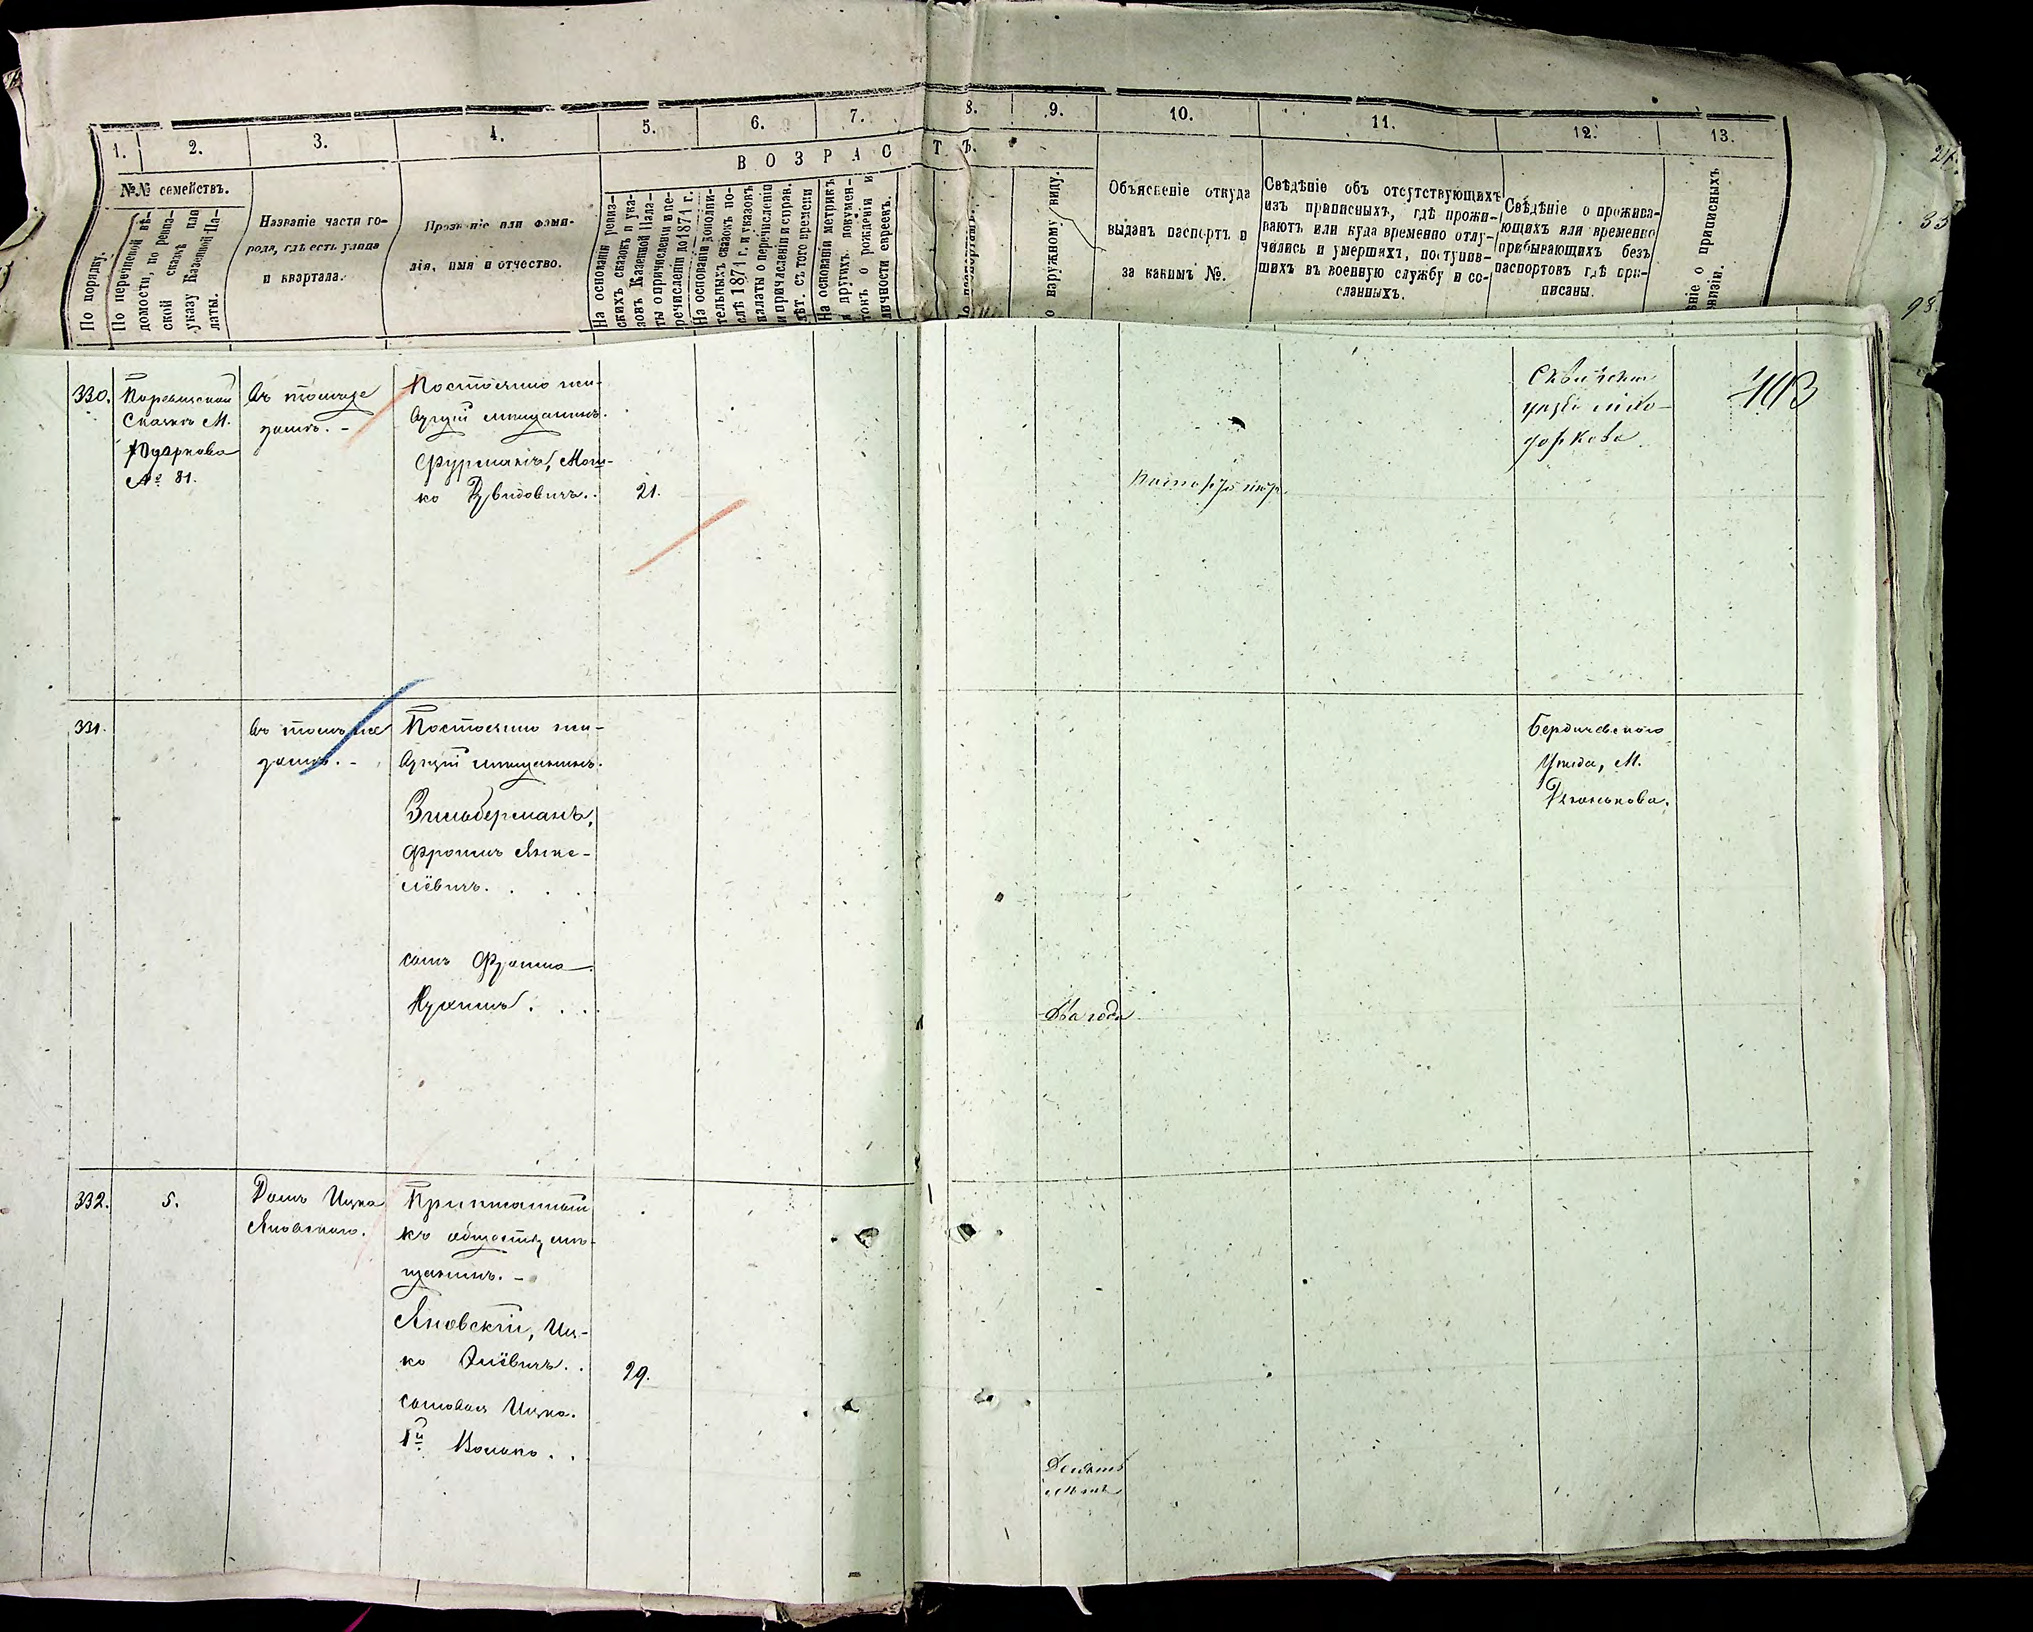 1. 2. 3. 4. 5. 6. 7. 8. 9. 10. 11. 12. 13.
ВОЗРАСТЪ.
№№ семействъ.
По порядку.
По перечневой вѣ-
домости, по ревиз-
ской сказкѣ или
указу Казенной Па-
латы.
Названіе части го-
рода, гдѣ есть улица
и квартала.
Прозваніе или фами-
лія, имя и отчество.
На основаніи ревиз-
скихъ сказокъ и ука-
зовъ Казенной Пала-
ты о причисленіи и пе-
речисленіи до 1874 г.
На основаніи дополни-
тельныхъ сказокъ по-
слѣ 1874 г. и указовъ
палаты о перечисленіи
и причисленіи и справ.
лѣт. съ того времени
На основаніи метрикъ
и другихъ докумен-
товъ о рожденіи и
личности евреевъ.
наружному виду.
Объясненіе откуда
выданъ паспортъ и
за какимъ №.
Свѣдѣніе объ отсутствующихъ
изъ приписныхъ, гдѣ прожи-
ваютъ или куда временно отлу-
чились и умершихъ, поступив-
шихъ въ военную службу и со-
сланныхъ.
Свѣдѣніе о прожива-
ющихъ или временно
прибывающихъ безъ
паспортовъ гдѣ при-
писаны.
ніе о приписныхъ
403
330.
По ревизской
Сказкѣ М.
№ 81.
Въ томъ же
домѣ. -
Постоянно жи-
вущій мѣщанинъ.
Фурманъ, Мош-
ко Дувидовичъ. .
21.
уѣзда
331.
Въ томъ же
домѣ. -
Постоянно жи-
вущій мѣщанинъ.
Зильберманъ,
Фроимъ Янке-
лёвичъ. . . .
сынъ Фроима
Нухимъ . . .
Два года
Бердичевскаго
Уѣзда, М.
332.
5.
Домъ Ицка
Яновскаго.
Приписанный
къ обществу мѣ-
щанинъ. -
Яновскій, Иц-
ко Элёвичъ. .
29.
сыновья Ицка.
1й Волько . .
Девять
лѣтъ